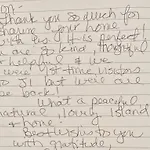 on-
thank you so much for
sharing your home!
with us! It is perfect!
are so kind, thoughtful
helpful & we
were 1st time visitors
last were are
be back!
What a peaceful
natural, lovely island
& home.
Best wishes to you
with gratitude,